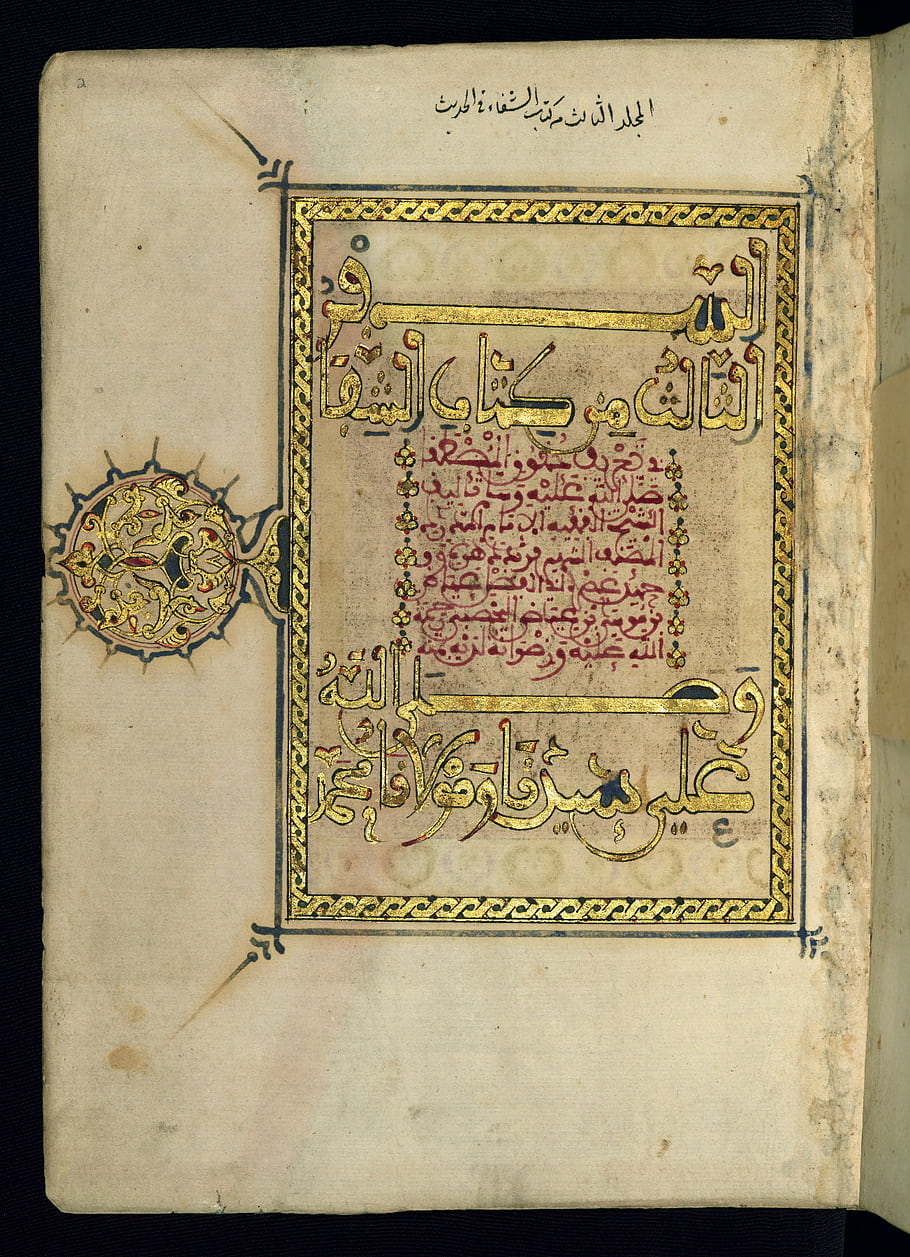 2
المجلد الثالث من كتاب الشفاء في الحديث
السفر
الثالث من كتاب الشفا
بتعريف حقوق المصطفى
صلى الله عليه وسلم تاليف
الشيخ الفقيه الامام
حميد عصره ابي الفضل عياض
بن موسى بن عياض اليحصبي رحمة
الله عليه ورضوانه لديه
وصلى الله
على سيدنا ومولانا محمد